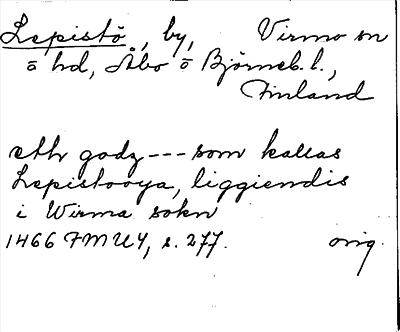 Lepistö, by, Virmo sn
ö hd, Åbo ö Björneb. l.,
Finland
eth godz --- som kallas
Lepistooya, liggiendis
i Wirma sokn
1466 FMU 4, s. 277. orig.